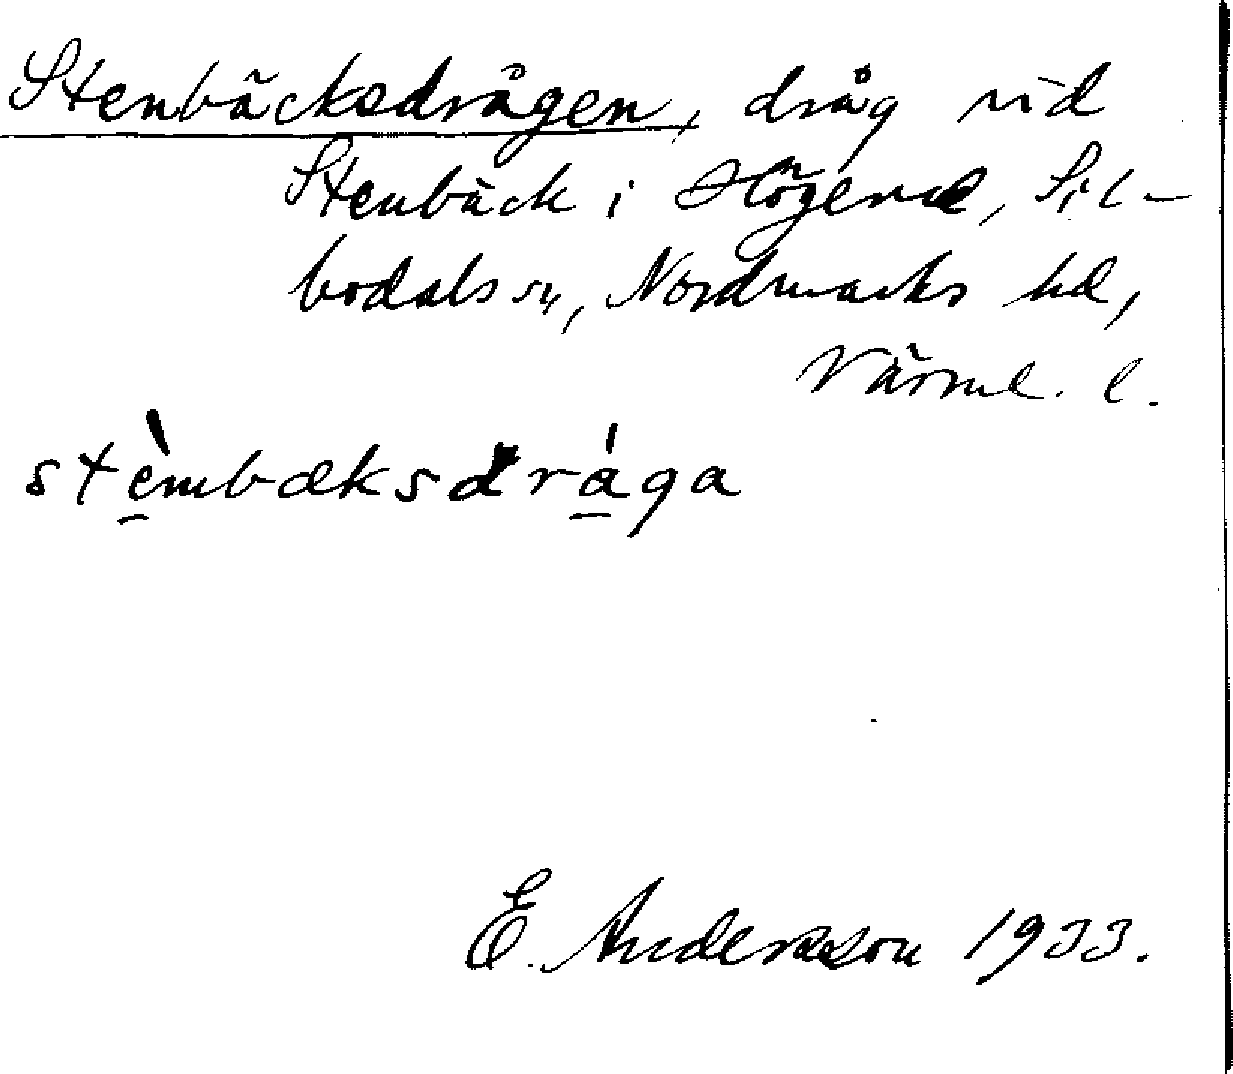 Stenbäcksdrågen, dråg vid
Stenbäck i Högerud, Sil-
bodals sn, Nordmarks hd,
Värml. l.
stèmbæksdrága
E. Andersson 1933.